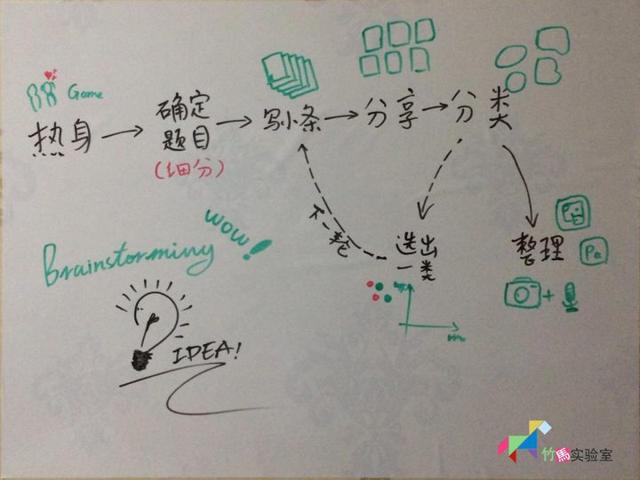 Game
热身
确定
题目
(细分)
写小条
分享
分类
下一轮
选出
一类
整理
Brainstorming
wow!
IDEA!
竹馬实验室